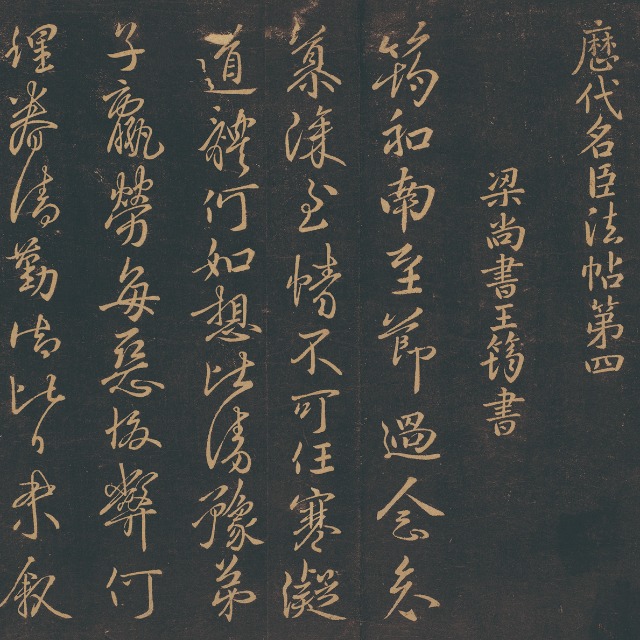 歷代名臣法帖第四
梁尚書王筠書
筠和南至節過念哀
慕深至情不可任寒凝
道體何如想比清豫弟
子羸勞每惡弊何
理眷清勤比日未叙